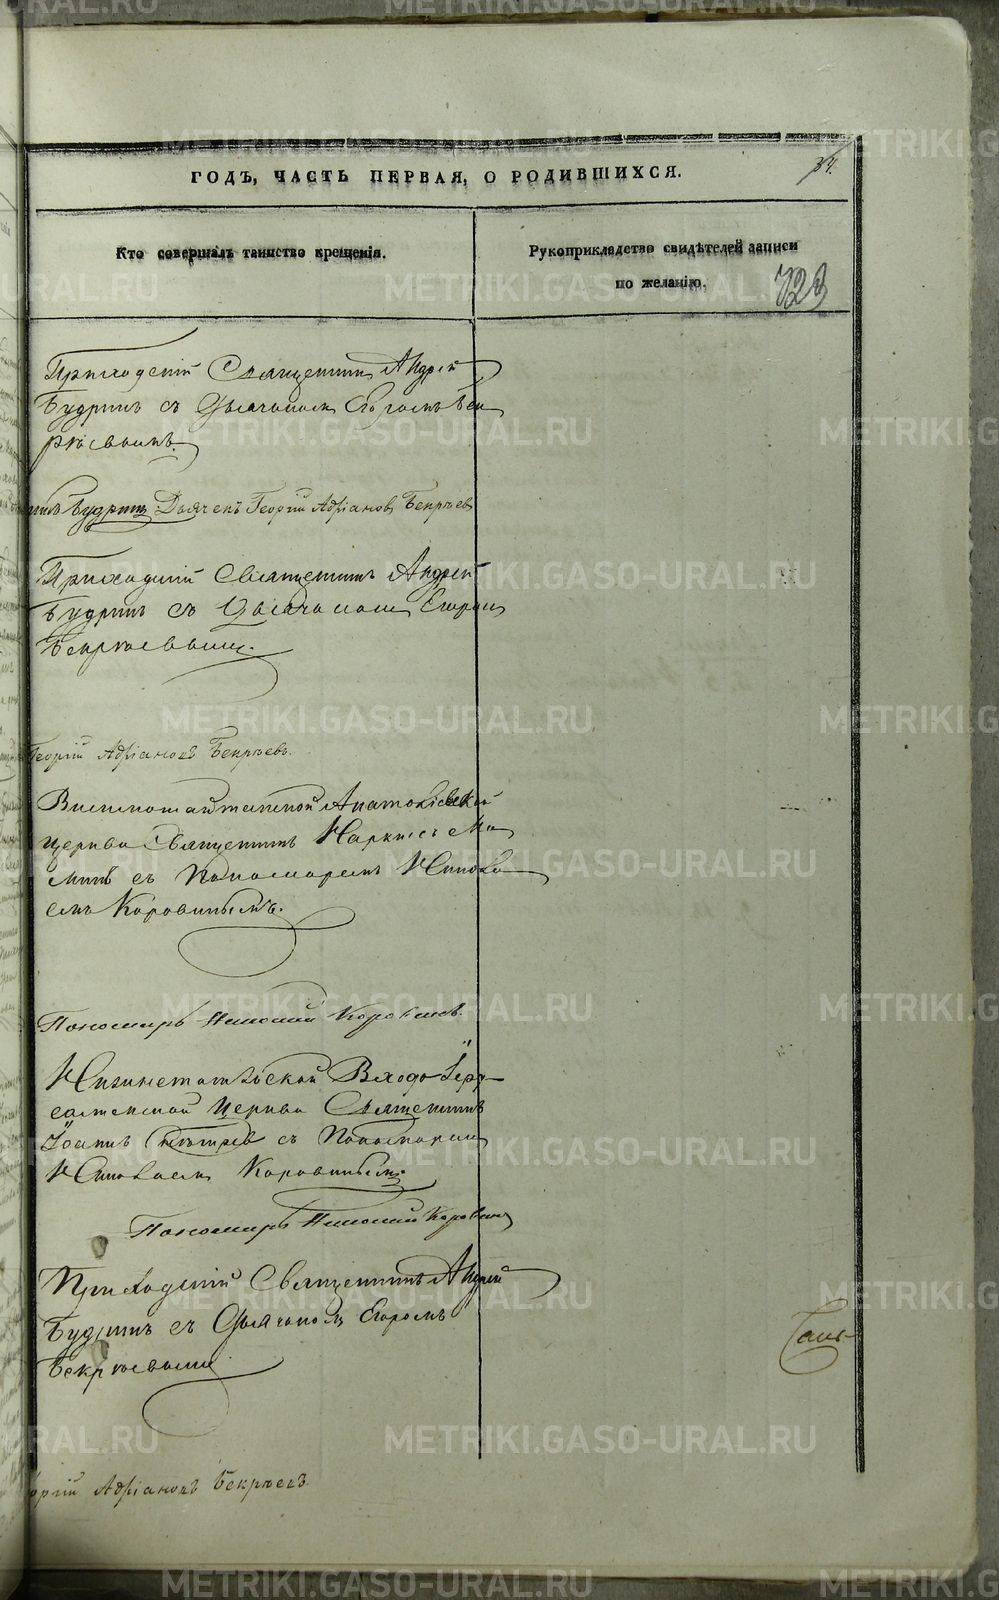 34.
ГОДЪ, ЧАСТЬ ПЕРВАЯ, О РОДИВШИХСЯ.
Кто совершалъ таинство крещенія.
Рукоприкладство свидѣтелей записи
по желанію.
723
Приходскій Священникъ Андрей
Будринъ съ Дьячкомъ Егоромъ Бек
рѣевымъ.
Будринъ Дьячекъ Георгій Адріановъ Бекрѣевъ
Приходскій Священникъ Андрей
Будринъ съ Дьячкомъ Егоромъ
Бекрѣевымъ.
Георгій Адріановъ Бекрѣевъ.
церкви Священникъ Наркисъ Ма
минъ съ Пономаремъ Никола
емъ Коровинымъ.
Пономарь Николай Коровинъ.
Нижнетагильской Входо Іеру
салимской церкви Священникъ
Іоаннъ съ Пономаремъ
Николаемъ Коровинымъ.
Пономарь Николай Коровинъ
Приходскій Священникъ Андрей
Будринъ съ Дьячкомъ Егоромъ
Бекрѣевымъ.
Георгій Адріановъ Бекрѣевъ
METRIKI.GASO-URAL.RU